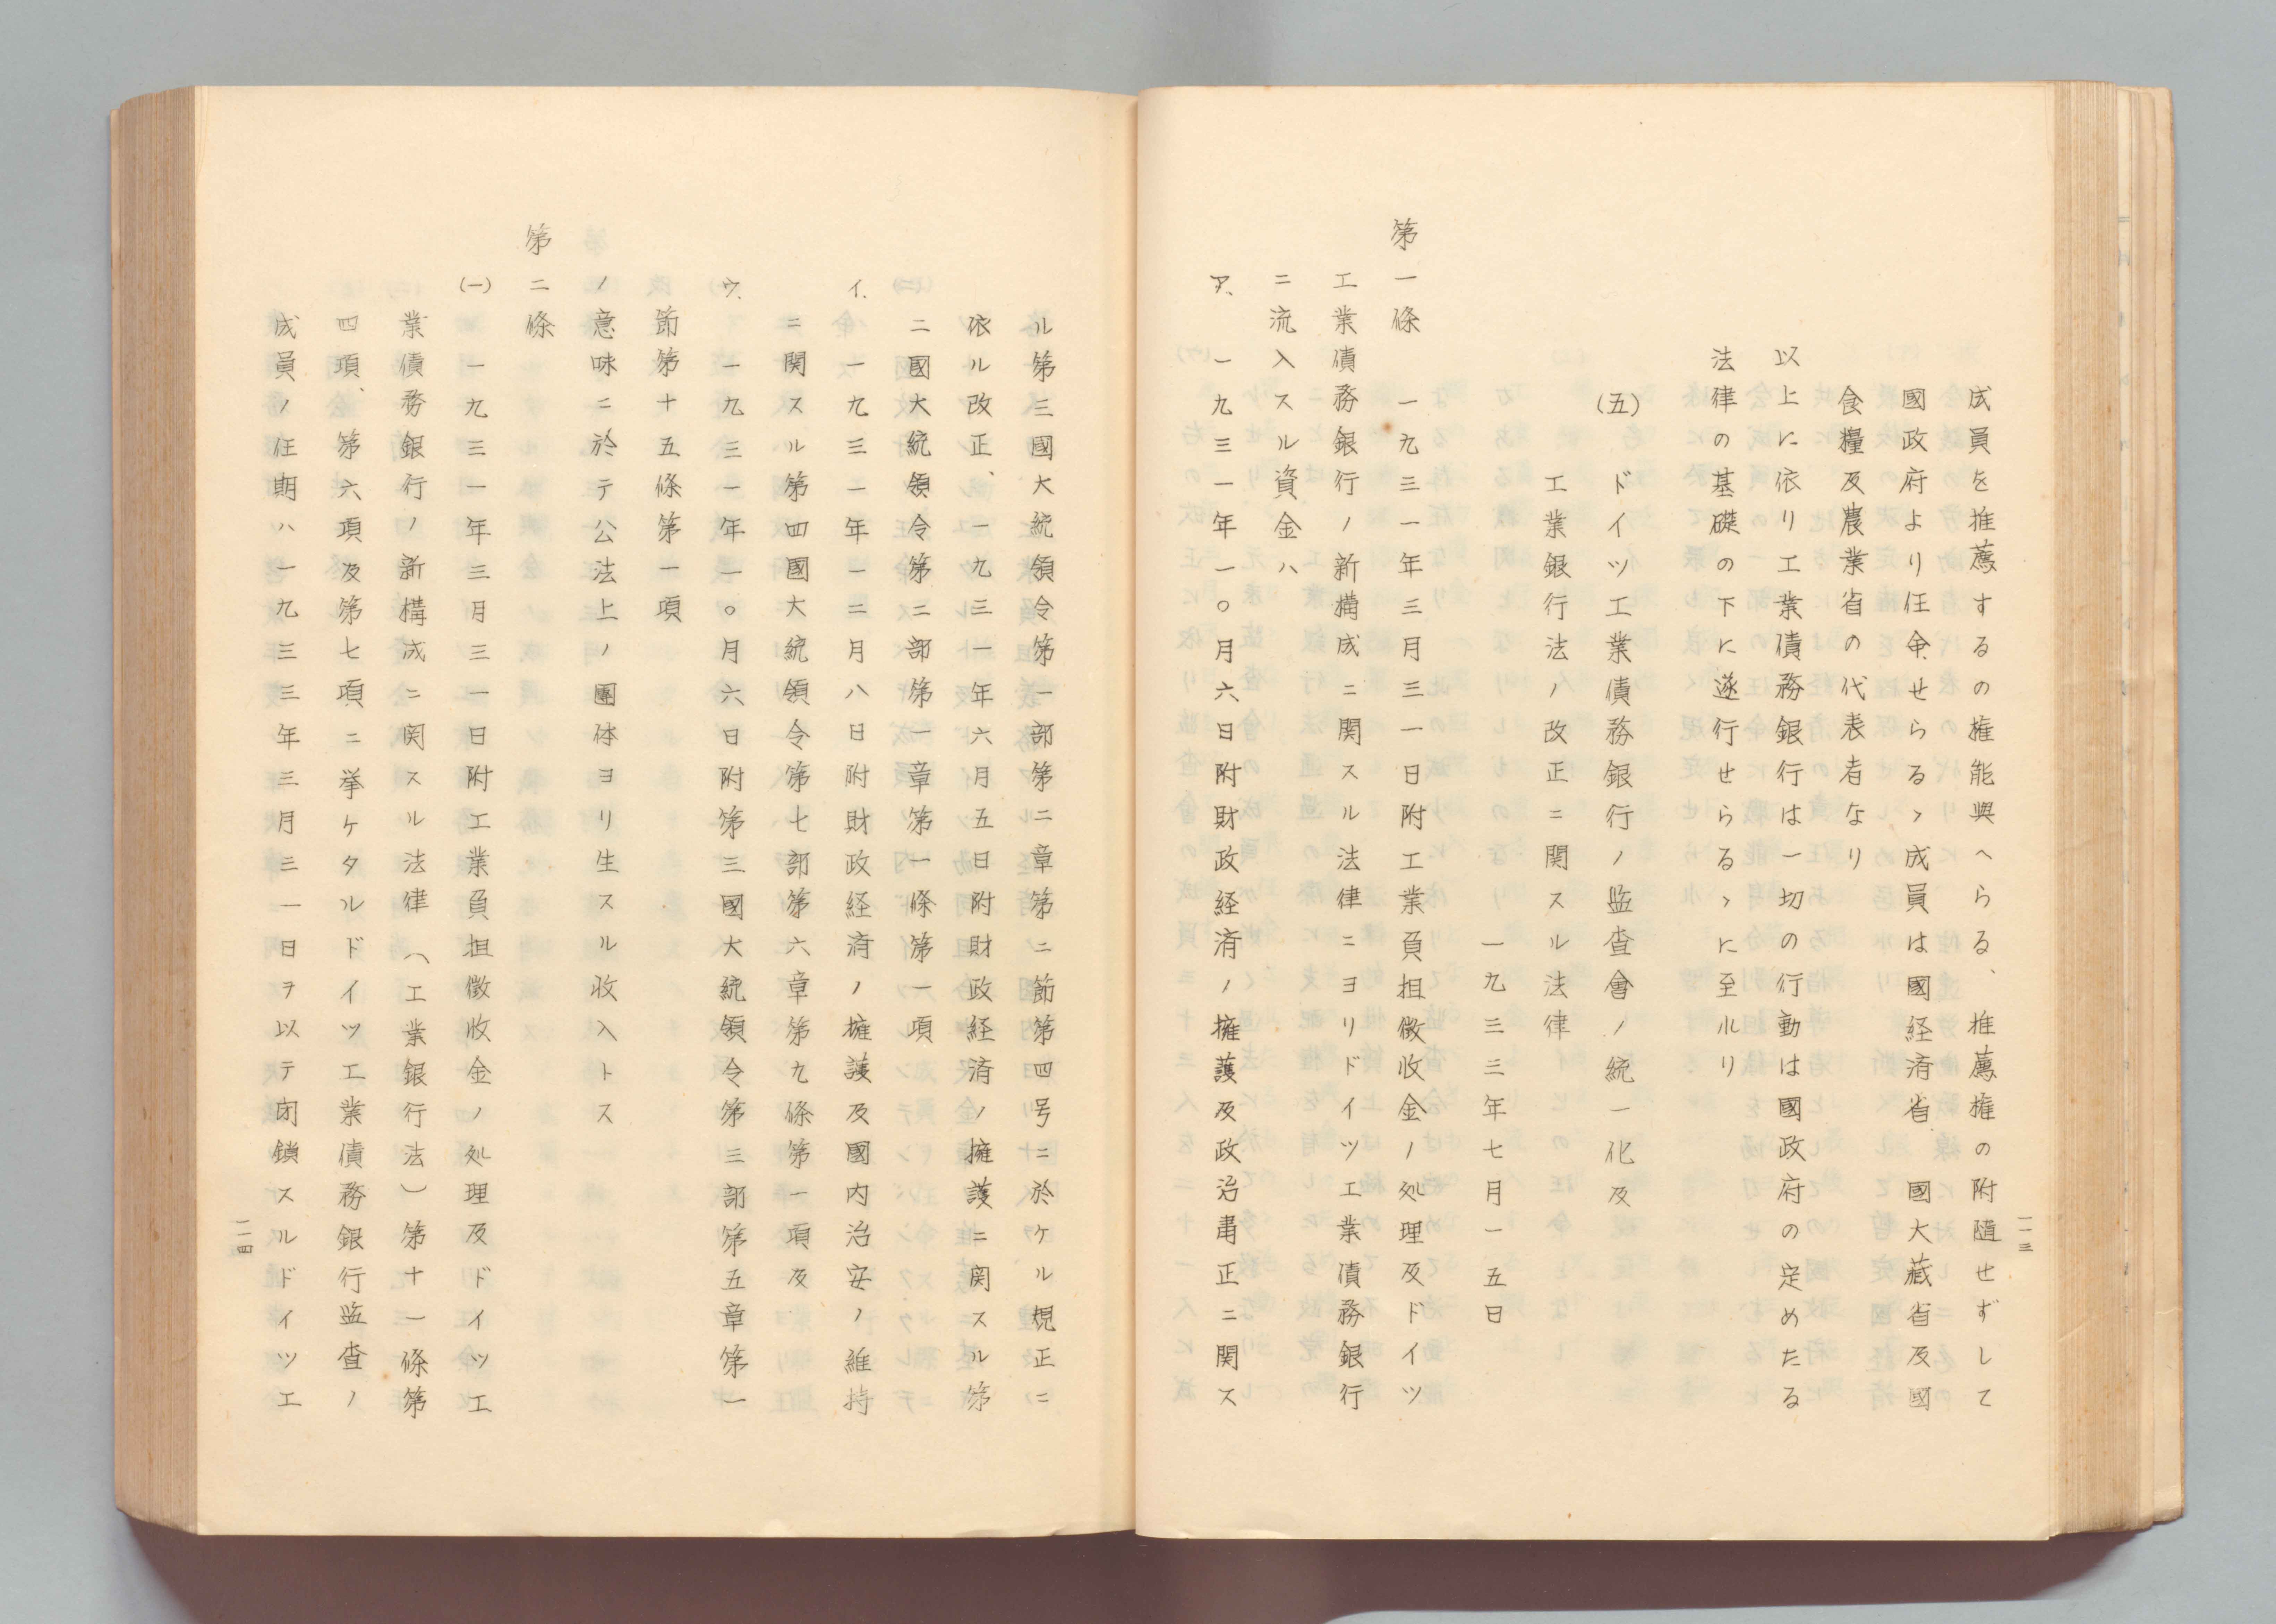 一一三
成員を推薦するの権能與へらる、推薦権の附隨せずして
國政府より任命せらるゝ成員は國経済省、國大藏省及國
食糧及農業省の代表者なり
以上に依り工業債務銀行は一切の行動は國政府の定めたる
法律の基礎の下に遂行せらるゝに至ルり
(五)　ドイツ工業債務銀行ノ監查會ノ統一化及
工業銀行法ノ改正ニ関スル法律
一九三三年七月一五日
第一條　一九三一年三月三一日附工業負担徴收金ノ処理及ドイツ
工業債務銀行ノ新構成ニ関スル法律ニヨリドイツ工業債務銀行
ニ流入スル資金ハ
ア、一九三一年一〇月六日附財政経済ノ擁護及政治肅正ニ関ス
ル第三國大統領令第一部第二章第二節第四号ニ於ケル規正ニ
依ル改正、一九三一年六月五日附財政経済ノ擁護ニ関スル第
二國大統領令第二部第一章第一條第一項
イ、一九三一年一二月八日附財政経済ノ擁護及國内治安ノ維持
ニ関スル第四國大統領令第七部第六章第九條第一項及
ウ、一九三一年一〇月六日附第三國大統領令第三部第五章第一
節第十五條第一項
ノ意味ニ於テ公法上ノ團体ヨリ生スル收入トス
第二條
(一)　一九三一年三月三一日附工業負担徴收金ノ処理及ドイツ工
業債務銀行ノ新構成ニ関スル法律（工業銀行法）第十一條第
四項、第六項及第七項ニ挙ケタルドイツ工業債務銀行監査ノ
成員ノ任期ハ一九三三年三月三一日ヲ以テ閉鎖スルドイツ工
一一四